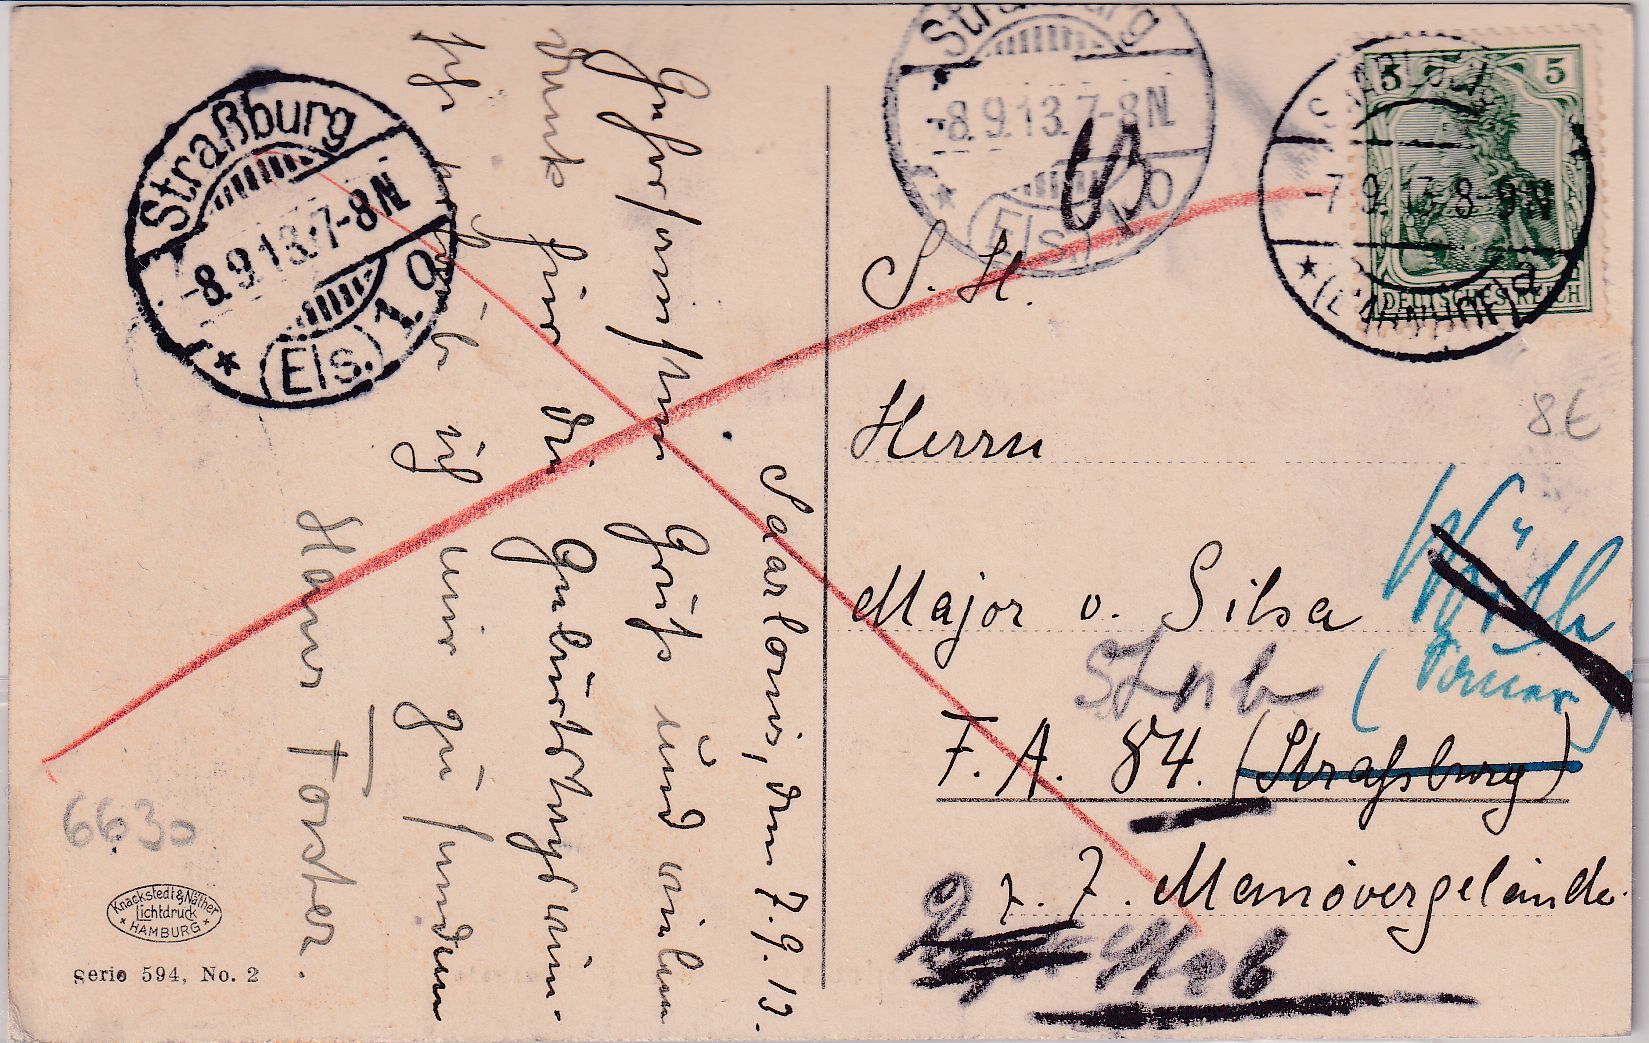 Saarlouis, den 7.9.13.
Gruß und vielen
Dank für die Geburtstagswün-
ich mir zu senden
Hans Forster.
Straßburg
-8.9.13.7-8N
* (Els.) 1 o
Straßburg
-8.9.13.7-8N
* (Els.) 1 o
-7.9.13.8-9N
5 5
DEUTSCHES REICH
S. H.
Herrn
Major v. Gilsa
Stab
F. A. 84. (Straßburg)
z. Z. Manövergelände.
Stab
8€
6630
Knackstedt & Näther
Lichtdruck
HAMBURG
Serie 594, No. 2